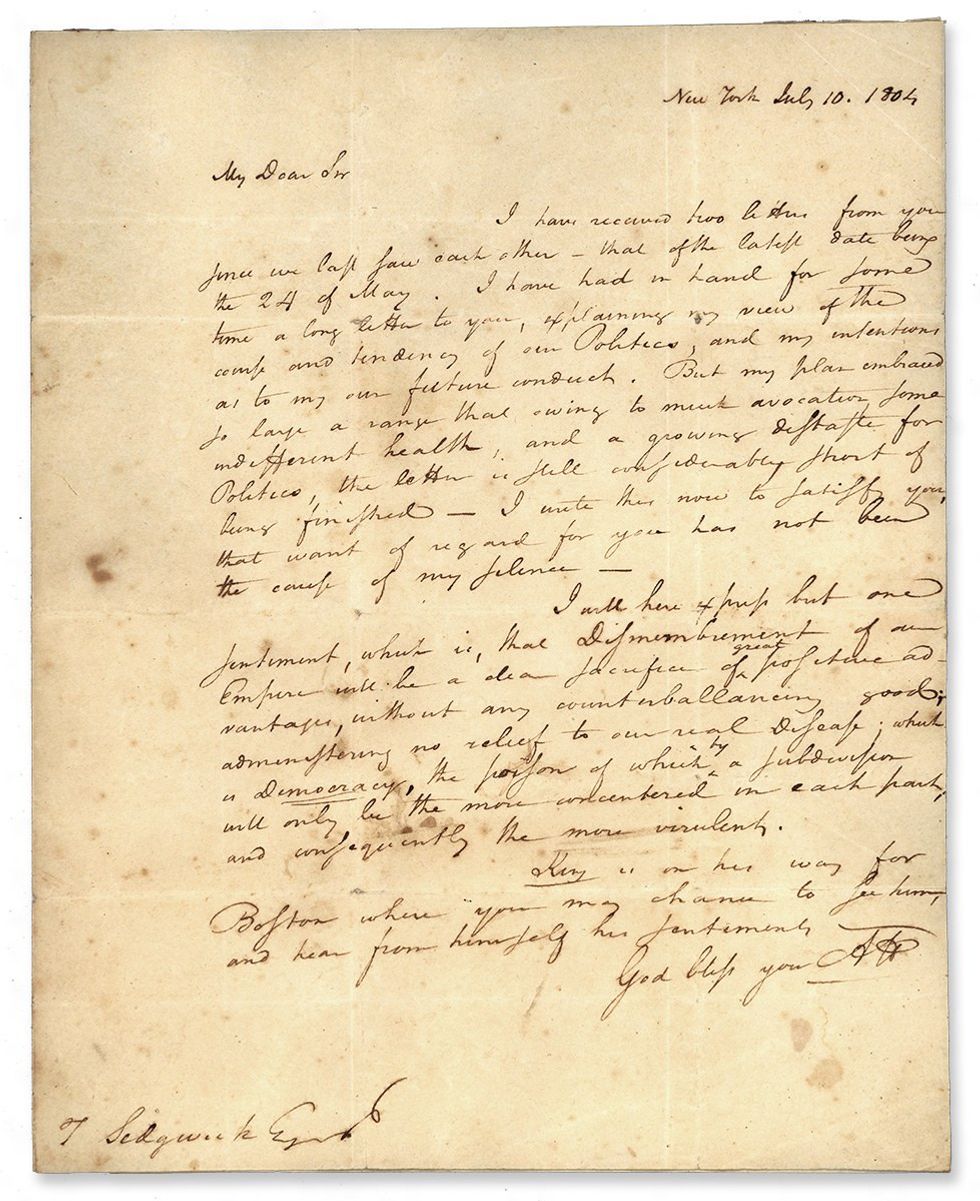 New York July 10. 1804
My Dear Sir
I have received two letters from you
since we last saw each other — that of the latest date being
the 24 of May. I have had in hand for some
time a long letter to you, explaining my view of the
course and tendency of our Politics, and my intentions
as to my own future conduct. But my plan embraced
so large a range that owing to much avocation, some
indifferent health, and a growing distaste for
Politics, the letter is still considerably short of
being finished — I write this now to satisfy you,
that want of regard for you has not been
the cause of my silence —
I will here express but one
sentiment, which is, that Dismembrement of our
Empire will be a clear sacrifice of great positive ad-
vantages, without any counterballancing good;
administering no relief to our real Disease; which
is Democracy, the poison of which by a subdivision
will only be the more concentered in each part,
and consequently the more virulent.
King is on his way for
Boston where you may chance to see him,
and hear from himself his sentiments
God bless you AH
T Sedgwick Esqr